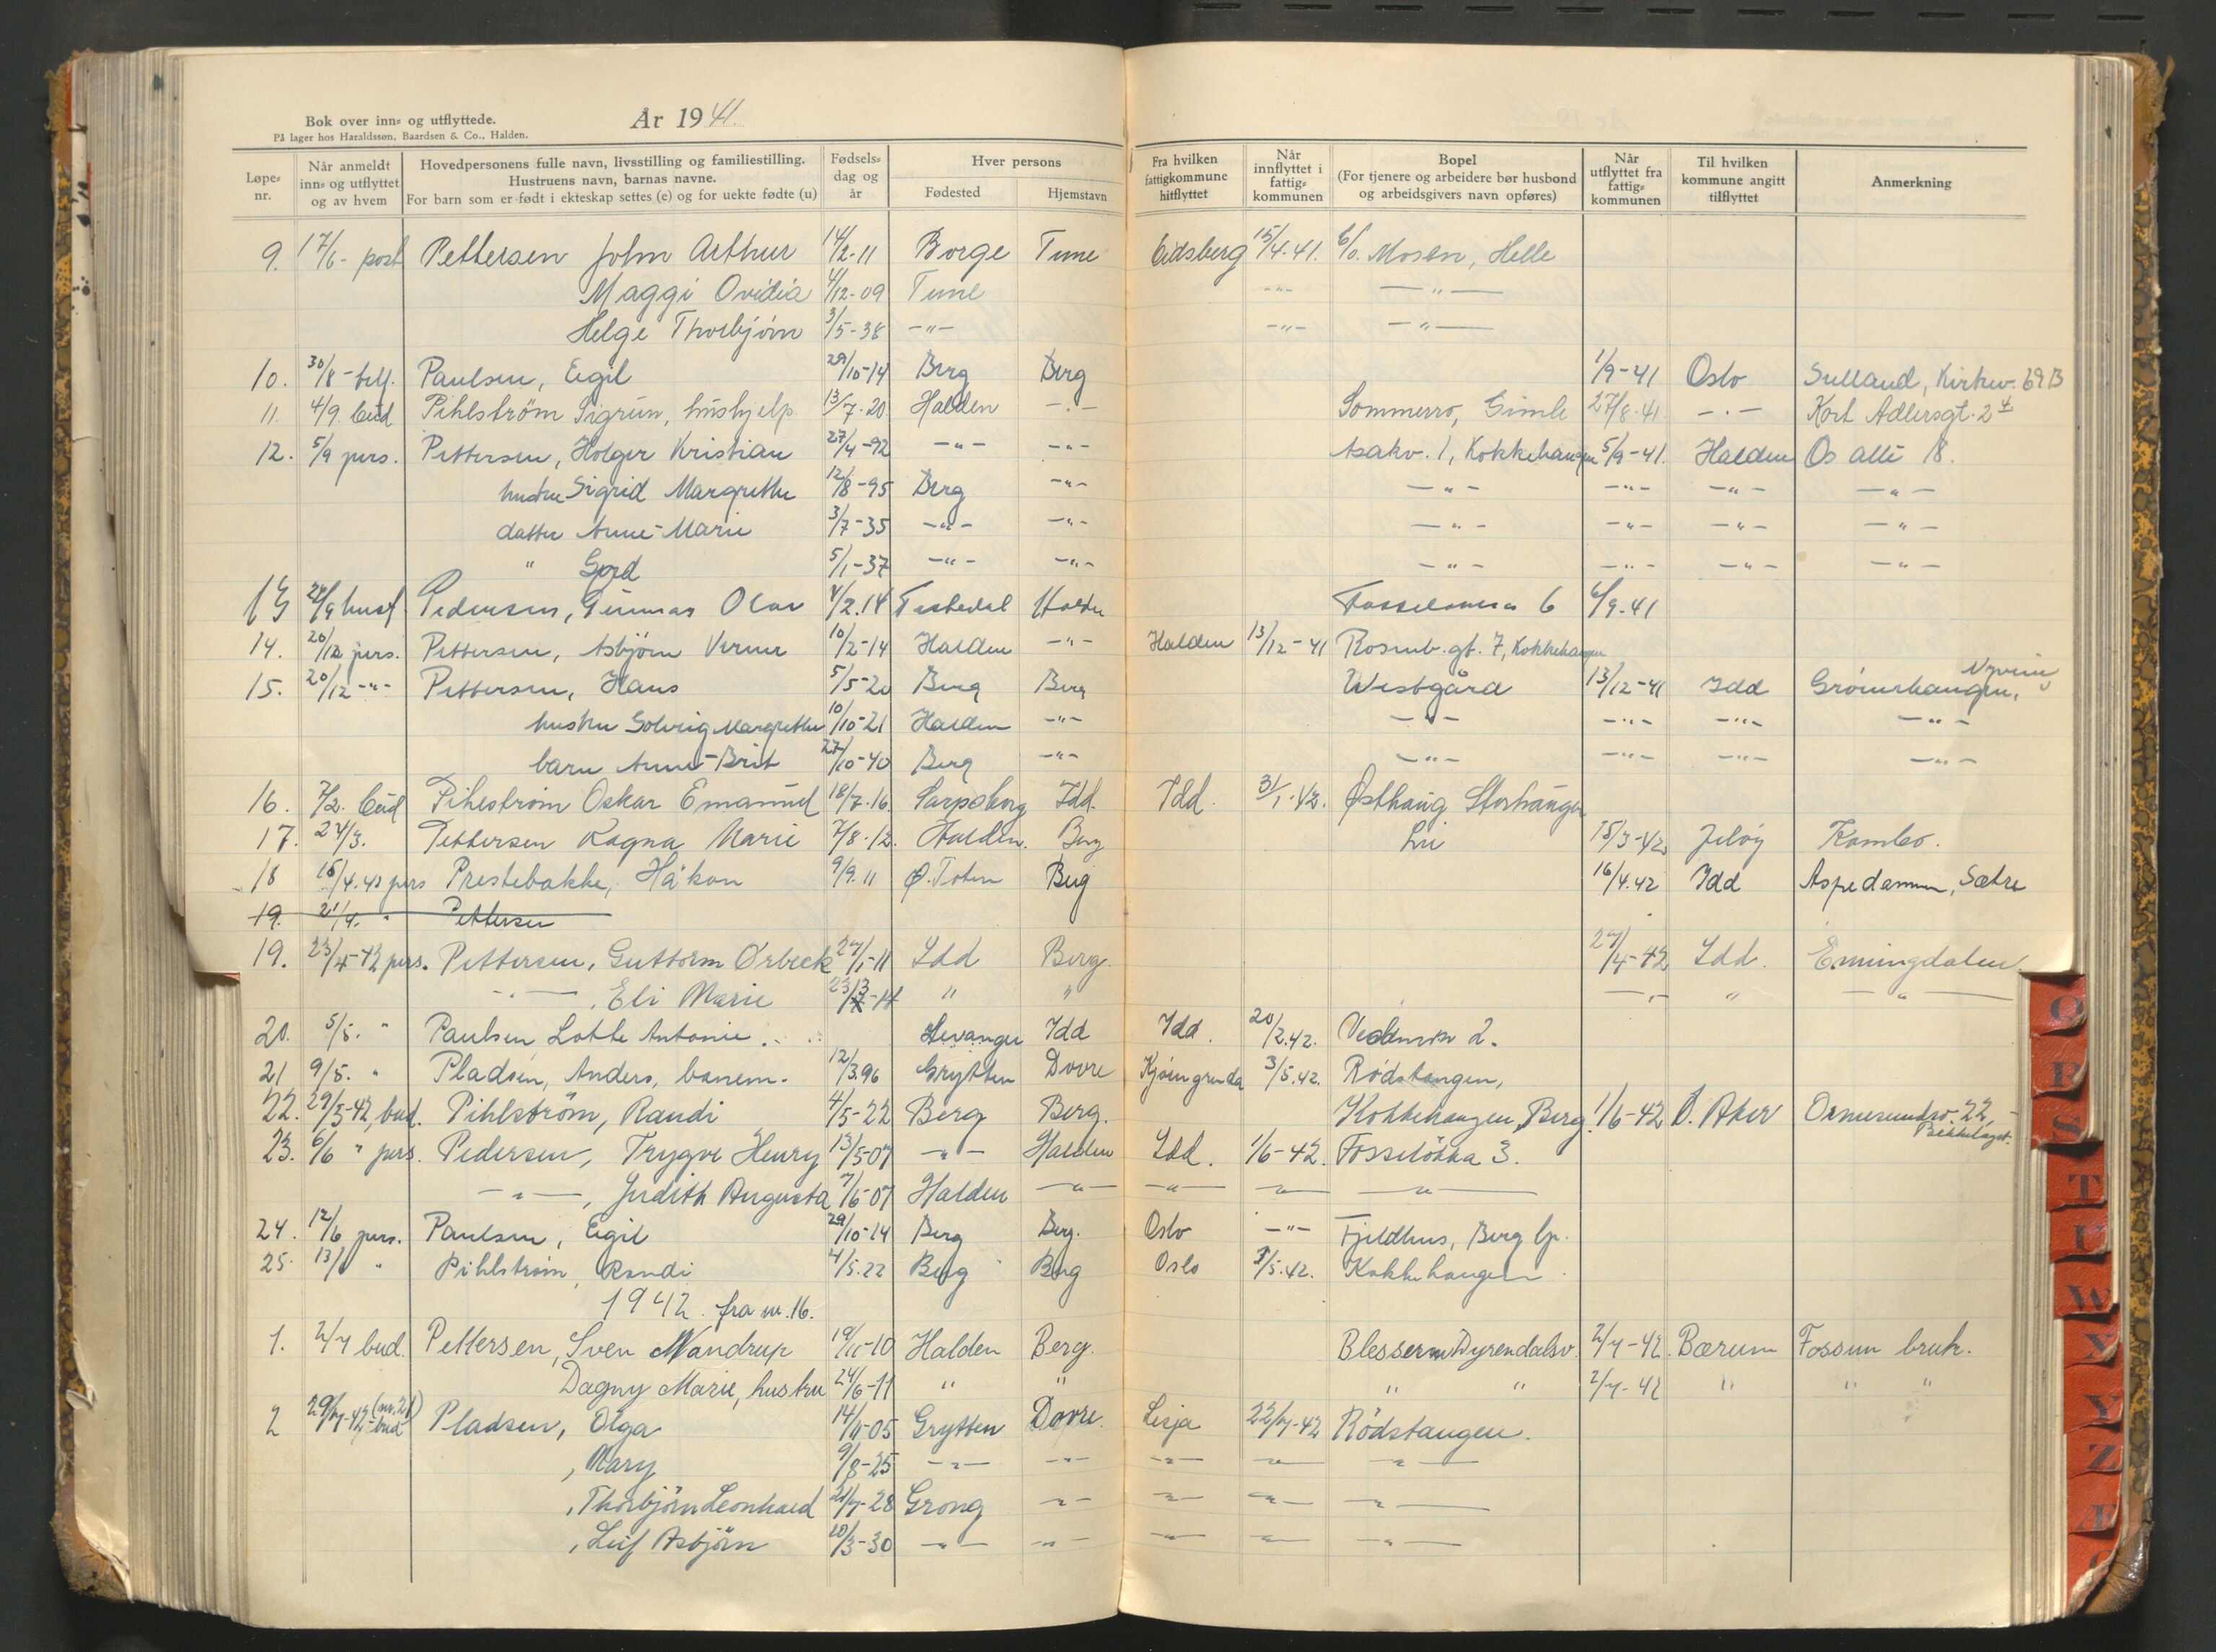 Bok over inn- og utflyttede.
På lager hos Haraldssøn, Baardsen & Co., Halden.
År 1941.
Løpe-nr. Når anmeldt inn- og utflyttet og av hvem Hovedpersonens fulle navn, livsstilling og familiestilling. Hustruens navn, barnas navne. For barn som er født i ekteskap settes (e) og for uekte fødte (u) Fødsels-dag og år Hver persons Fødested Hjemstavn Fra hvilken fattigkommune hitflyttet Når innflyttet i fattig-kommunen Bopel (For tjenere og arbeidere bør husbond og arbeidsgivers navn opføres) Når utflyttet fra fattig-kommunen Til hvilken kommune angitt tilflyttet Anmerkning
9. 17/6- post Pettersen John Arthur 14/2-11 Borge Tune Eidsberg 15/4-41. c/o. Mosen, Helle
Maggi Ovidia 4/12-09 Tune -"- -"-
Helge Thorbjørn 3/5-38 -"- -"- -"-
10. 30/8- telf. Paulsen, Eigil 29/10-14 Berg Berg 1/9-41 Oslo Sulland, Kirkev. 69B
11. 4/9. bud Pihlström Sigrun, hushjelp 13/7-20 Halden -"- Sommerro, Gimle 27/8-41 -"- Kort Adlersgt. 2 4
12. 5/9 pers. Pettersen, Holger Kristian 27/4-92 -"- -"- Asakv. 1, Kokkehaugen 5/9-41. Halden Os allé 18.
hustru Sigrid Margrethe 12/8-95 Berg -"- -"- -"- -"- -"-
datter Anne-Marie 3/7-35 -"- -"- -"- -"- -"- -"-
" Gerd 5/1-37 -"- -"- -"- -"- -"- -"-
13 24/9 husf. Pedersen, Gunnar Olav 4/2.14 Halden 6 6/9-41
14. 20/12 pers. Pettersen, Asbjørn Verner 10/2-14 Halden -"- Halden 13/12-41 Rosenb.gt. 7, Kokkehaugen
15. 20/12 -"- Pettersen, Hans 5/5-20 Berg Berg Vestgård 13/12-41 Idd Grönnehaugen,
hustru Solveig Margrethe 10/10-21 Halden -"- -"- -"- -"- -"-
barn Anne-Brit 27/10-40 Berg -"- -"- -"- -"- -"-
16. 7/2. bud Pihlström Oskar Emanuel 18/7-16 Sarpsborg Idd. Idd. 31/1-42. Østhaug Storhaugen
17. 24/3. Pettersen Ragna Marie 7/8-12. Halden. Berg Lie 15/3-42 Jeløy Kambo.
18 16/4.42 pers Prestebakke, Håkon 9/9.11 Ø.Toten Berg 16/4.42 Idd Aspedammen, Sætre
19. 21/4. " Pettersen
19. 23/4-42 pers. Pettersen, Guttorm Ørbeck 27/1-11 Idd Berg. 27/4-42 Idd. Enningdalen
-"-, Eli Marie " " -"- " -"-
20. 5/5. " Paulsen Lotte Antonie Levanger Idd Idd. 20/2.42. 2.
21 9/5. " Pladsen, Anders, banem. 12/3.96 Grytten Dovre 3/5.42. Rödstangen,
22. 29/5-42, bud. Pihlström, Randi 4/5-22 Berg Berg. Kokkehaugen, Berg. 1/6-42 Ö. Aker Ormsundsv. 22, Bekkelaget.
23. 6/6 " pers. Pedersen, Trygve Henry 13/5-07 -"- Halden Idd. 1/6-42. Fosselökka 3.
-"-, Judith Augusta 7/6-07 Halden -"- -"- -"- -"-
24. 12/6 pers. Paulsen, Eigil 29/10-14 Berg Berg. Oslo -"- Fjeldhus, Berg lp.
25. 13/6 " Pihlström, Randi 4/5.22 Berg Berg Oslo 3/5.42. Kokkehaugen.
1942. fra nr. 16.
1. 2/7 bud. Pettersen, Sven Nandrup 19/11-10 Halden Berg. Blessern Dyrendalsv. 2/7-42. Bærum Fossum bruk.
Dagny Marie, hustru 24/6-11 " " " " 2/7-42 " " "
2 29/7-42, (nr. 21) bud Pladsen, Olga 14/11-05 Grytten Dovre. Lesja 22/7-42 Rödstangen.
, Mary 9/8-25 -"- -"- -"- -"- -"-
, Thorbjörn Leonhard 21/7-28 Grong -"- -"- -"- -"-
, Leif Asbjörn 20/3-30 -"- -"- -"- -"- -"-
Q
R
S
T
U
W
X
Y
Z
Æ